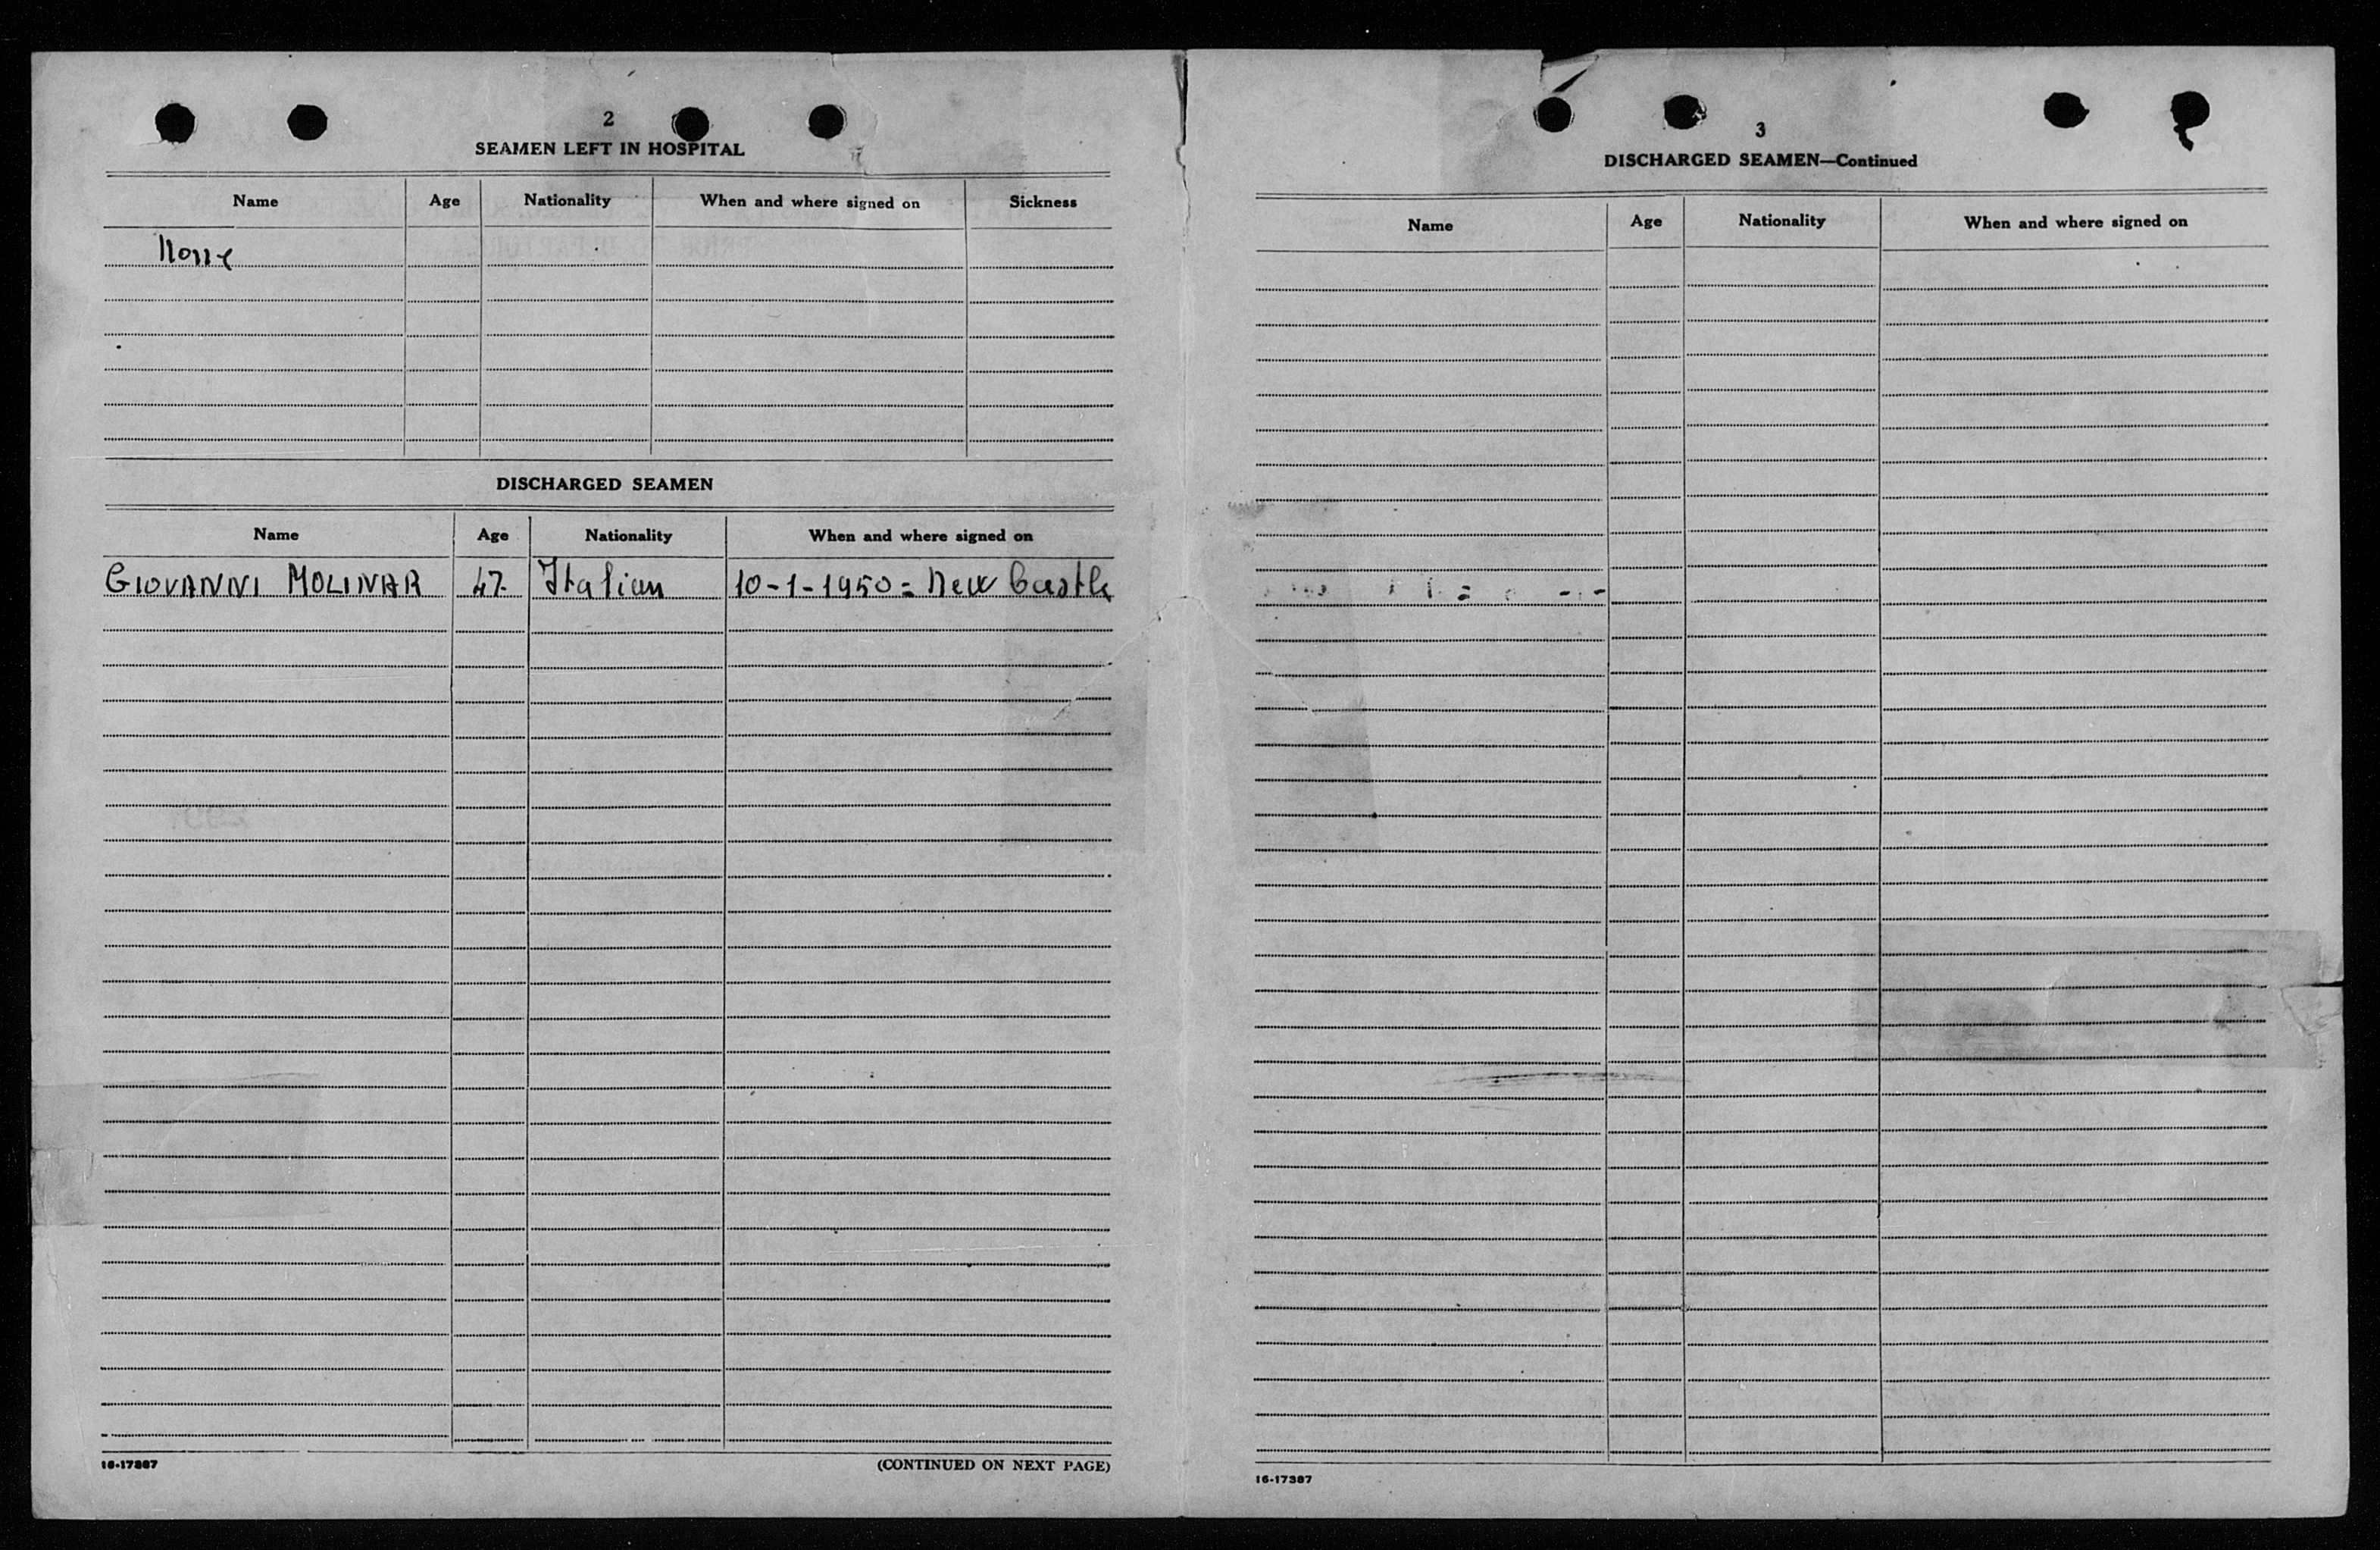 2
SEAMEN LEFT IN HOSPITAL
Name Age Nationality When and where signed on Sickness
None
DISCHARGED SEAMEN
Name Age Nationality When and where signed on
GIOVANNI MOLINAR 47 Italian 10-1-1950 = New Castle
16-17387 (CONTINUED ON NEXT PAGE)
3
DISCHARGED SEAMEN—Continued
Name Age Nationality When and where signed on
16-17387